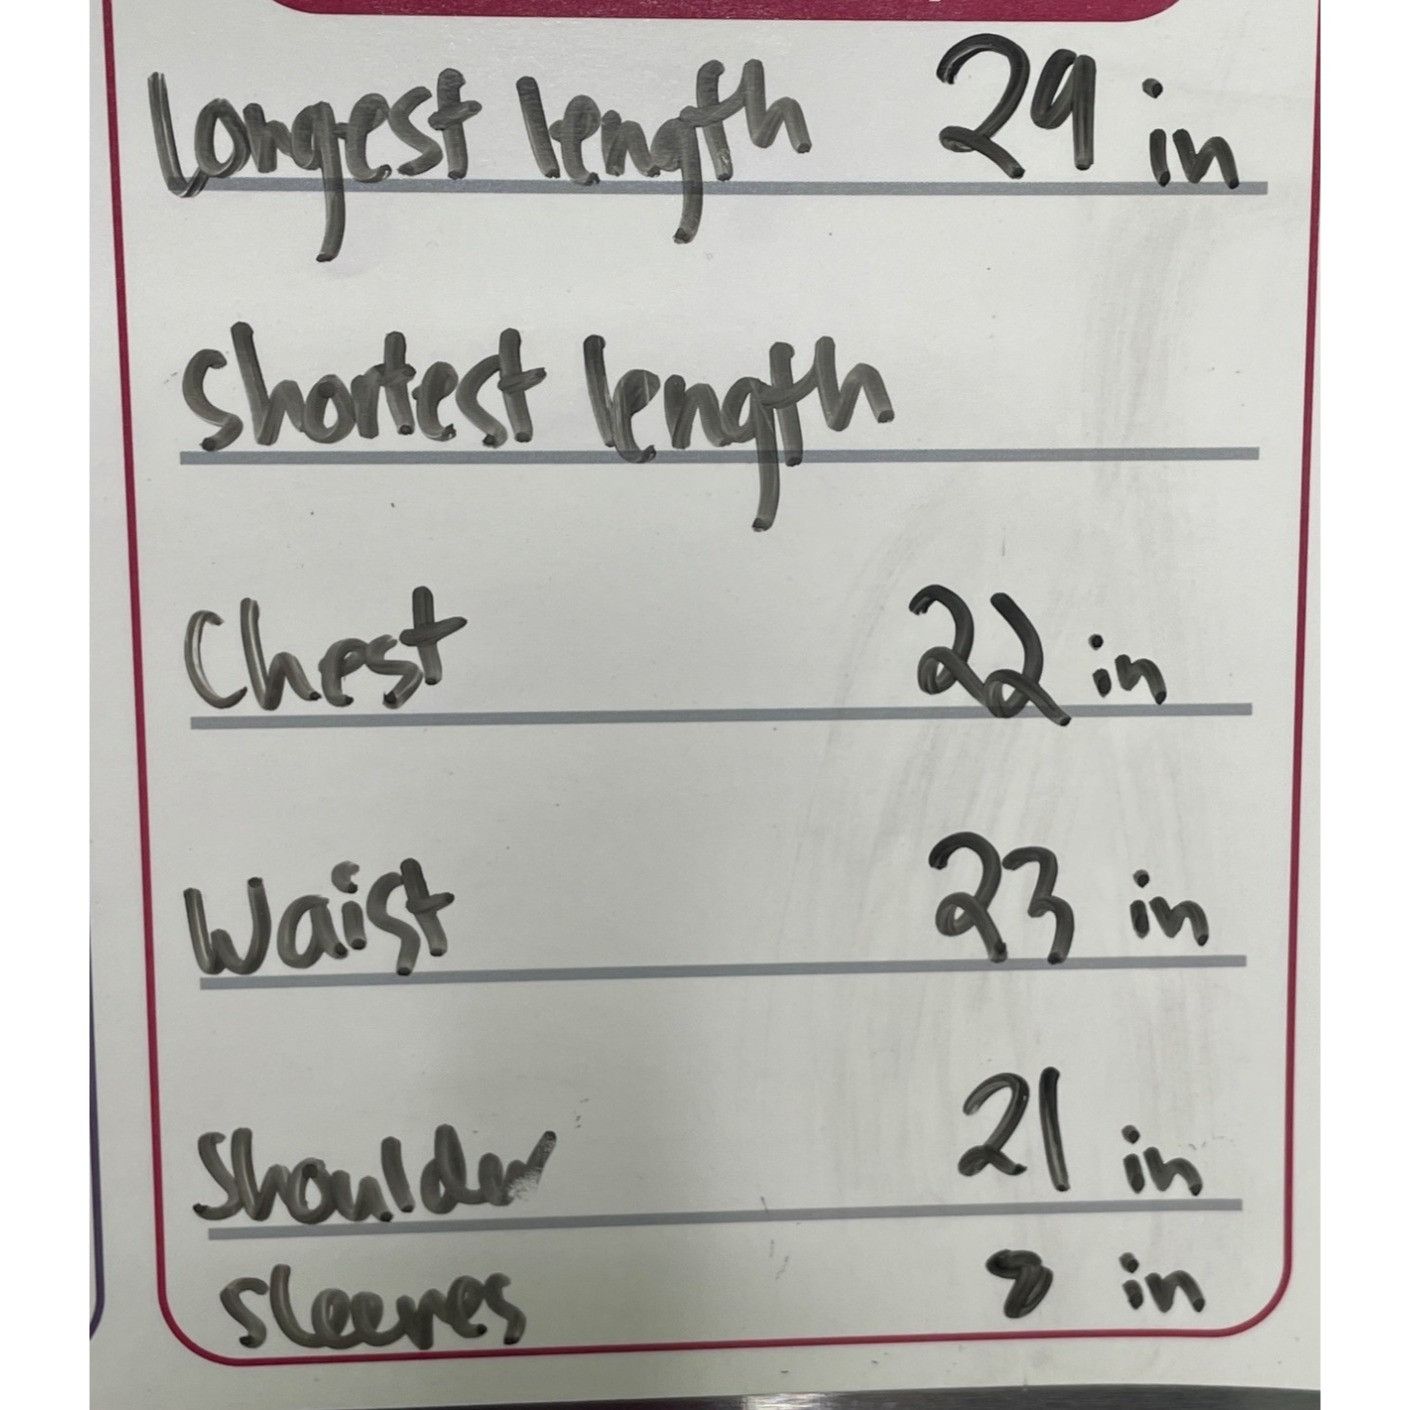 Longest length 29 in
Shortest length
Chest 22 in
Waist 23 in
Shoulder 21 in
Sleeves 8 in